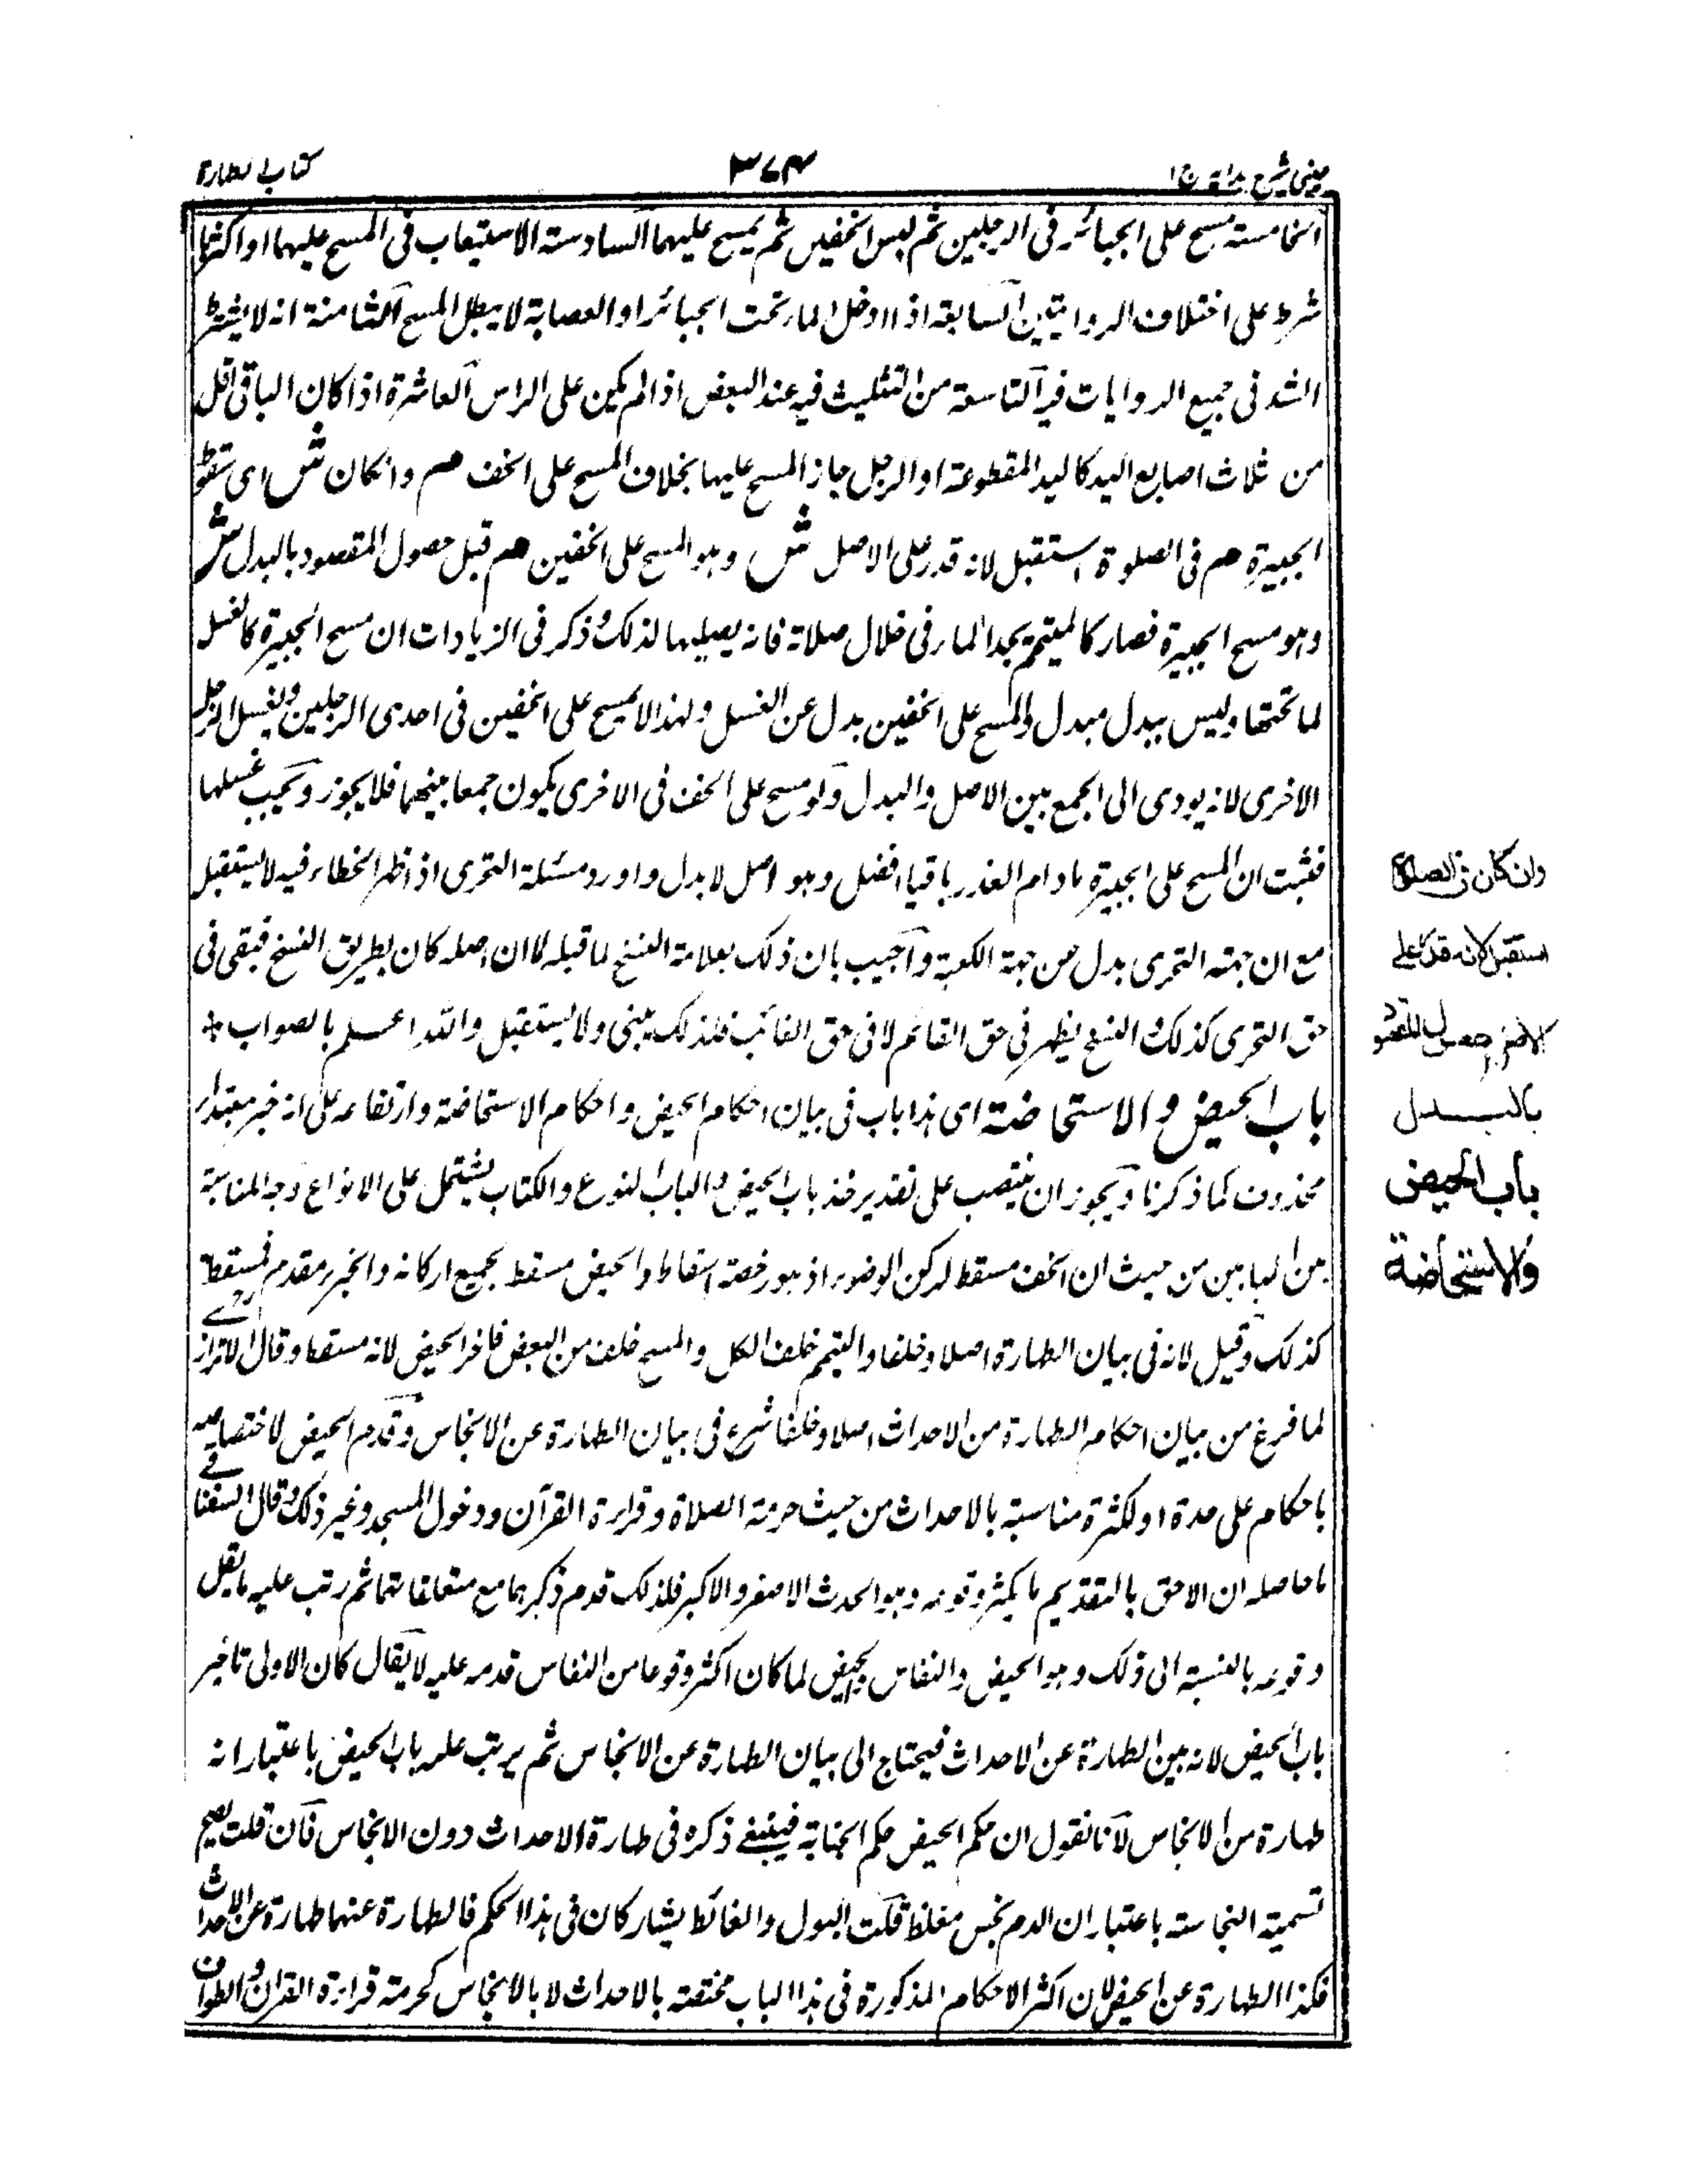 عینی شرح ہدایہ ج ۱
۳۷۴
کتاب الطهارة
الخامسة مسح على الجبائر فى الرجلين ثم لبس الخفين ثم يمسح عليهما السادسة الاستيعاب فى المسح عليها او اكثرها
شرط على اختلاف الروايتين السابعة اذا ادخل الماء تحت الجبائر او العصابة لا يبطل المسح الثامنة انه لا يشترط
الشد فى جميع الروايات فيه التاسعة من التثليث فيه عند البعض اذا لم يكن على الراس العاشرة اذا كان الباقى اقل
من ثلاث اصابع اليد كاليد المقطوعة او الرجل جاز المسح عليها بخلاف المسح على الخف هم وانكان ش اى سقوط
الجبيرة هم فى الصلوة استقبل لانه قدر على الاصل ش وهو المسح على الخفين هم قبل حصول المقصود بالبدل ش
وهو مسح الجبيرة فصار كالمتيمم يجد الماء فى خلال صلاة فانه يصليها لذلك وذكر فى الزيادات ان مسح الجبيرة كالغسل
لما تحتها وليس ببدل مبدل والمسح على الخفين بدل عن الغسل ولهذا لا يمسح على الخفين فى احدى الرجلين ويغسل الرجل
الاخرى لانه يودى الى الجمع بين الاصل والبدل ولو مسح على الخف فى الاخرى يكون جمعا بينهما فلا يجوز ويجب غسلها
فثبت ان المسح على الجبيرة ما دام العذر باقيا افضل وهو اصل لا بدل واورد مسئلة التحرى اذا ظهر الخطاء فيه لا يستقبل
مع ان جهة التحرى بدل من جهة الكعبة واجيب بان ذلك بعلامة النسخ لما قبله لما ان اصله كان بطريق النسخ فبقى فى
حق التحرى كذلك والنسخ يظهر فى حق القائم لا فى حق الفائت فلذلك يبنى ولا يستقبل والله اعلم بالصواب *
باب الحيض والاستحاضة اى هذا باب فى بيان احكام الحيض واحكام الاستحاضة وارتفاعه على انه خبر مبتدأ
محذوف كما ذكرنا ويجوز ان ينتصب على تقدير خذ باب الحيض والباب النوع والكتاب يشتمل على الانواع وجه المناسبة
بين البابين من حيث ان الخف مسقط لركن الوضوء اذ هو رخصة اسقاط والحيض مسقط بجميع اركانه والخبر مقدم فسقطه
كذلك وقيل لانه فى بيان الطهارة اصلا وخلفا والتيمم خلف الكل والمسح خلف من البعض فاخر الحيض لانه مسقط وقال الاترازى رح
لما فرغ من بيان احكام الطهارة من الاحداث اصلا وخلفا شرع فى بيان الطهارة عن الانجاس وقدم الحيض لاختصاصه
باحكام على حدة او لكثرة مناسبة بالاحداث من حيث حرمة الصلاة وقراءة القرآن ودخول المسجد وغير ذلك وقال السغناقى
ما حاصله ان الاحق بالتقديم ما يكثر وقوعه وهو الحدث الاصغر والاكبر فلذلك قدم ذكرهما مع متعلقاتهما ثم رتب عليه ما يقل
وقوعه بالنسبة الى ذلك وهو الحيض والنفاس والحيض لما كان اكثر وقوعا من النفاس قدمه عليه لا يقال كان الاولى تاخير
باب الحيض لانه بين الطهارة عن الاحداث فيحتاج الى بيان الطهارة عن الانجاس ثم يرتب عليه باب الحيض باعتبار انه
طهارة من الانجاس لانا نقول ان حكم الحيض حكم الجنابة فينبغى ذكره فى طهارة الاحداث دون الانجاس فان قلت يصح
تسمية النجاسة باعتبار ان الدم نجس مغلظ قلت البول والغائط يشاركان فى هذا الحكم فالطهارة عنهما طهارة عن الاحداث
فكذا الطهارة عن الحيض لان اكثر الاحكام المذكورة فى هذا الباب مختصة بالاحداث لا بالانجاس كحرمة قراءة القرآن والطواف
وان كان فى الصلوة
استقبل لانه قدر على
الاصل قبل حصول المقصود
بالبـــدل
باب الحيض
والاستحاضة